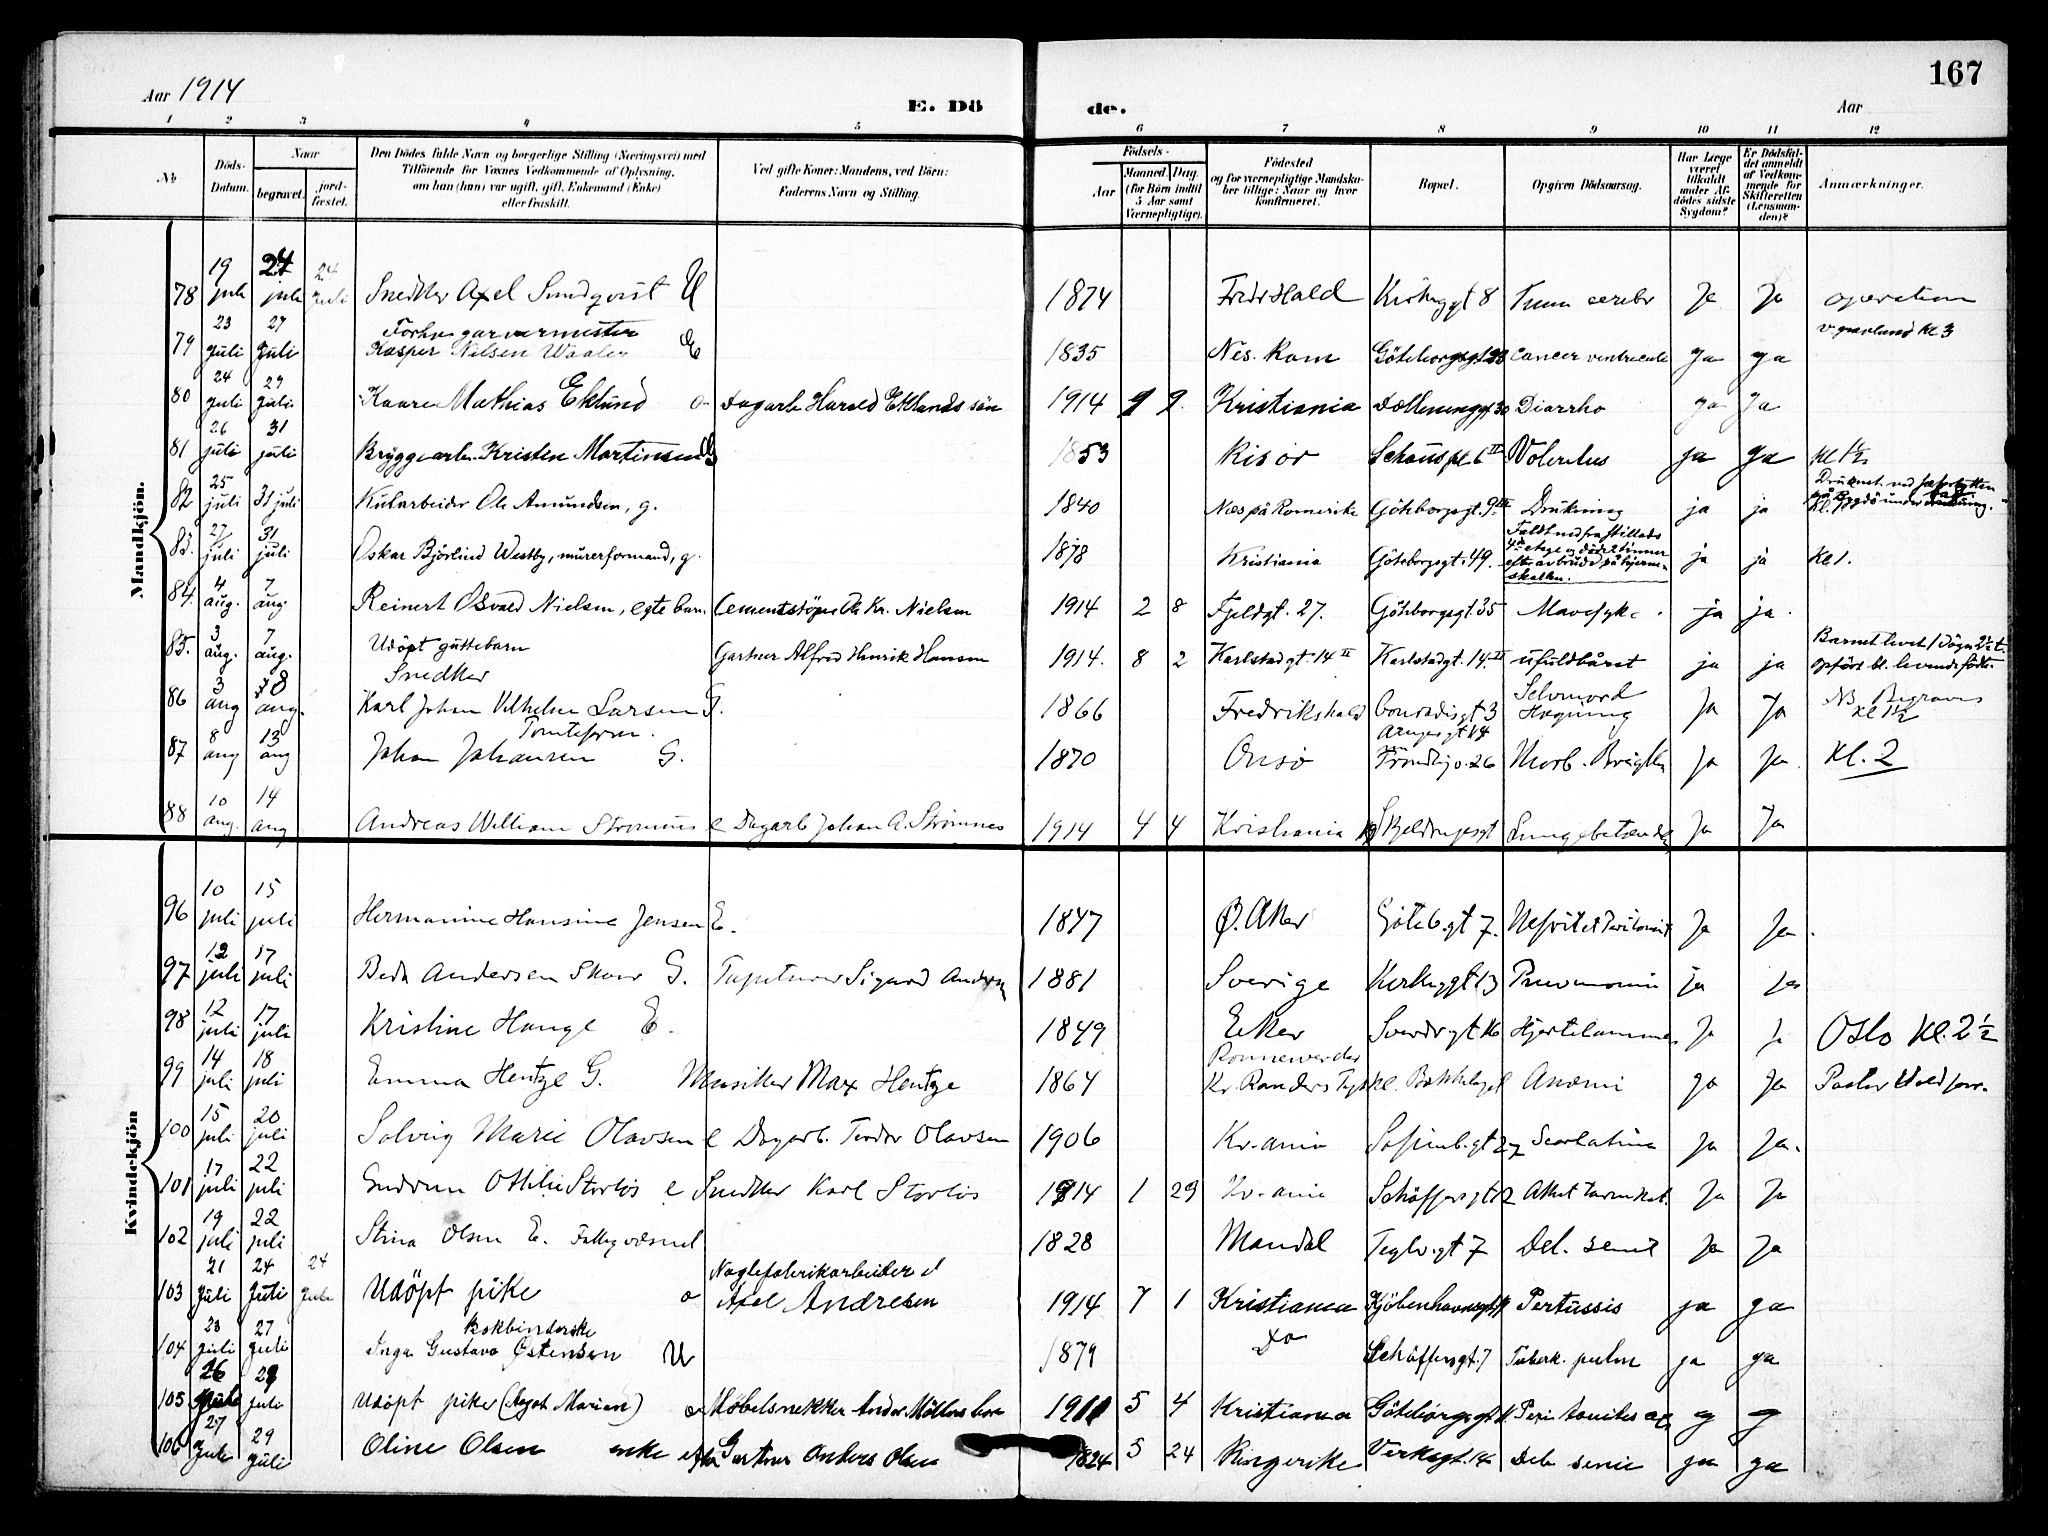 167
Aar 1914
E. Dö de.
Aar
1 2 3 4 5 6 7 8 9 10 11 12
No
Döds-Datum.
Naar
begravet.
jord-fæstet.
Den Dödes fulde Navn og borgerlige Stilling (Næringsvei) med
Tilföiende for Voxnes Vedkommende af Oplysning,
om han (hun) var ugift, gift, Enkemand (Enke)
eller fraskilt.
Ved gifte Koner: Mandens, ved Börn:
Faderens Navn og Stilling.
Födsels-
Aar
Maaned. Dag.
(for Börn indtil
5 Aar samt
Værnepligtige).
Födested
og for værnepligtige Mandska-
ber tillige: Naar og hvor
konfirmeret.
Bopæl.
Opgiven Dödsaarsag.
Har Læge
været
tilkaldt
under Af-
dödes sidste
Sygdom?
Er Dödsfal-
det anmeldt
af Vedkom-
mende for
Skifteretten
(Lensman-
den)?
Anmærkninger.
Mandkjön.
78 19 juli 24 juli 24 juli Snedker Axel Sundqvist U 1874 Fredr.hald 8 Tum cerebr Ja Ja operation
79 23 juli 27 juli Forhv garvermester Kasper Nilsen Waaler E 1835 Nes. Rom Göteborgsgt 33 Cancer ventriculi ja ja v gravlund kl 3
80 24 juli 29 juli Kaare Mathias Eklund Dagarb Harald Eklunds sön 1914 9 Kristiania 30 Diarrho ja ja
81 26 juli 31 juli Bryggearb. Kristen Martinsen G 1853 Risör Schous pl. 6 II ja ja kl 1½
82 25 juli 31 juli Ole Amundsen, g. 1840 Næs på Romerike Göteborgsgt. 9 III Drukning ja ja Druknet ved
83. 27 juli 31 juli Oskar Björlind Westby, murerformand, g. 1878 Kristiania Göteborgsgt. 49. Faldt ned fra stillads 4de etage og döde 2 timer efter av brudd på hjerneskallen. ja ja Kl 1.
84. 4 aug. 7 aug. Reinert Osvald Nielsen, egte barn. Cementstöper Ole Kr. Nielsen 1914 2 8 Fjeldgt. 27. Göteborgsgt. 35 Mavesyke. ja ja.
85. 3 aug. 7 aug. Udöpt guttebarn Gartner Alfred Henrik Hansen 1914. 8 2 Karlstadgt. 14 II Karlstadgt. 14 II ufuldbåret ja ja Barnet levet opförs bl. levendefödte.
86 3 aug 8 aug. Snedker Karl Johan Vilhelm Larsen G. 1866 Fredrikshald Conradisgt 3 Selvmord Hægning Ja Ja NB Begraves kl 1½
87 8 aug 13 aug Tomteform. Johan Johansen G. 1870 Onsö 26 Morb. Brigthi Ja Ja. Kl. 2
88 10 aug. 14 aug Andreas William Strömnes e Dagarb Johan A. Strömnes 1914 4 4 Kristiania Lungebetændelse Ja Ja
Kvindekjön
96 10 juli 15 juli Hermanine Hansine Jensen E. 1847 Ö. Aker Götebgt 7. Nefrit et Peritonit Ja Ja.
97 12 juli 17 juli Andersen Skour G. Tapetserer Sigurd Andersen 1881 Sverige Kirkeggt 13 Pneumonie ja ja
98 12 juli 17 juli Kristine Hauge E. 1849 Eker Sverdr.gt 16 Hjertelammelse Ja j Oslo Kl. 2½
99 14 juli 18 juli Emma Hentze G. Musiker Max Hentze 1864 Kr. Randers Anæmi ja Ja Pastor
100 15 juli 20 juli Solveig Marie Olavsen e Dagarb. Teodor Olavsen 1906 Kr-ania Sofienb.gt 27 Scarlatina Ja Ja.
101 17 juli 22 juli Gudrun Othilie Storlös e Snedker Karl Storlös 1914 1 29 Kr-ania Schöffersgt 12 Akut tarmkat. Ja Ja
102 19 juli 22 juli Stina Olsen E. Fattigvæsnet 1828 Mandal Teglv.gt 7 Deb. senil Ja Ja
103 21 juli 24 juli 24 juli Udöpt pike Naglefabrikarbeider Axel Andresen 1914 7 1 Kristiania Kjöbenhavnsgt Pertussis ja ja
104 23 juli 27 juli Bokbinderske Inga Gustava Östensen U 1879 do Schöffersgt. 7 Tuberk. pulm ja ja
105 26 juli 29 juli Udöpt pike (Aagot Marian) Möbelsnekker 5 4 Kristiania Göteborgsgt
106 27 juli 29 juli Oline Olsen enke efter Gartner Anders Olsen 1824 5 24 Ringerike Verksgt. 14 Deb senil ja ja